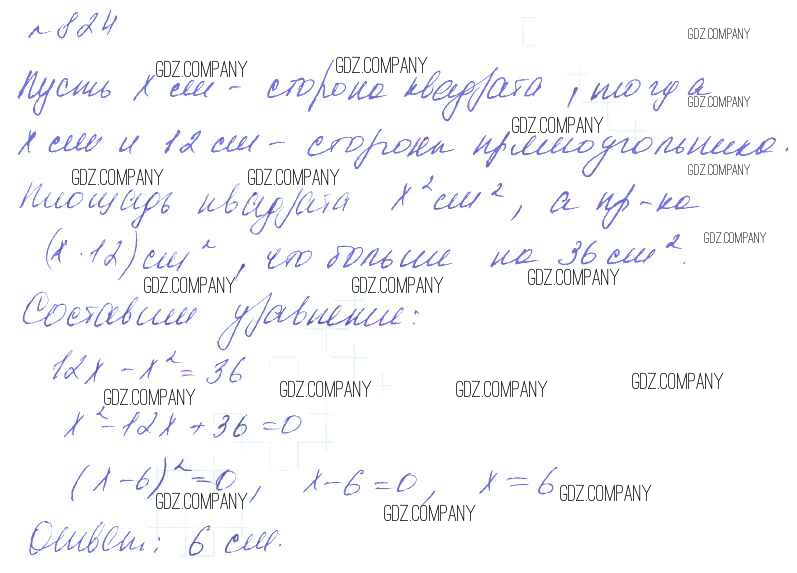 № 824
GDZ.COMPANY
GDZ.COMPANY GDZ.COMPANY
Пусть x см - сторона квадрата, тогда
GDZ.COMPANY
GDZ.COMPANY
x см и 12 см - стороны прямоугольника.
GDZ.COMPANY GDZ.COMPANY GDZ.COMPANY
Площадь квадрата x² см², а пр-ка
GDZ.COMPANY
(x · 12) см², что больше на 36 см².
GDZ.COMPANY GDZ.COMPANY GDZ.COMPANY
Составим уравнение:
12x - x² = 36
GDZ.COMPANY GDZ.COMPANY GDZ.COMPANY GDZ.COMPANY
x² - 12x + 36 = 0
(x - 6)² = 0, x - 6 = 0, x = 6
GDZ.COMPANY GDZ.COMPANY GDZ.COMPANY
Ответ: 6 см.